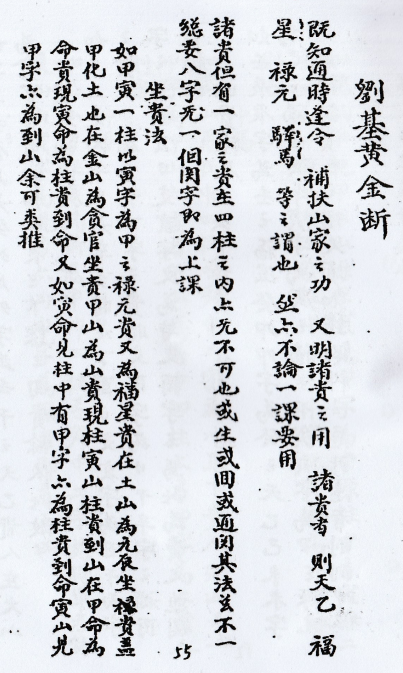 劉基黃金断
既知通時逢令 補扶山家之功 又明諸貴之用 諸貴者 則天乙 福
星 祿元 驛馬 等之謂也 然亦不論一課要用
諸貴但有一家之貴在四柱之内亦无不可也或生或回或通関其法玄不一
総要八字无一個閑字即為上課
坐貴法
如甲寅一柱以寅字為甲之祿元貴又為福星貴在土山為元辰坐祿貴盖
甲化土也在金山為貪官坐貴甲山為山貴現柱寅山柱貴到山在甲命為
命貴現寅命為柱貴到命又如寅命見柱中有甲字亦為柱貴到命寅山見
甲字亦為到山余可类推
55